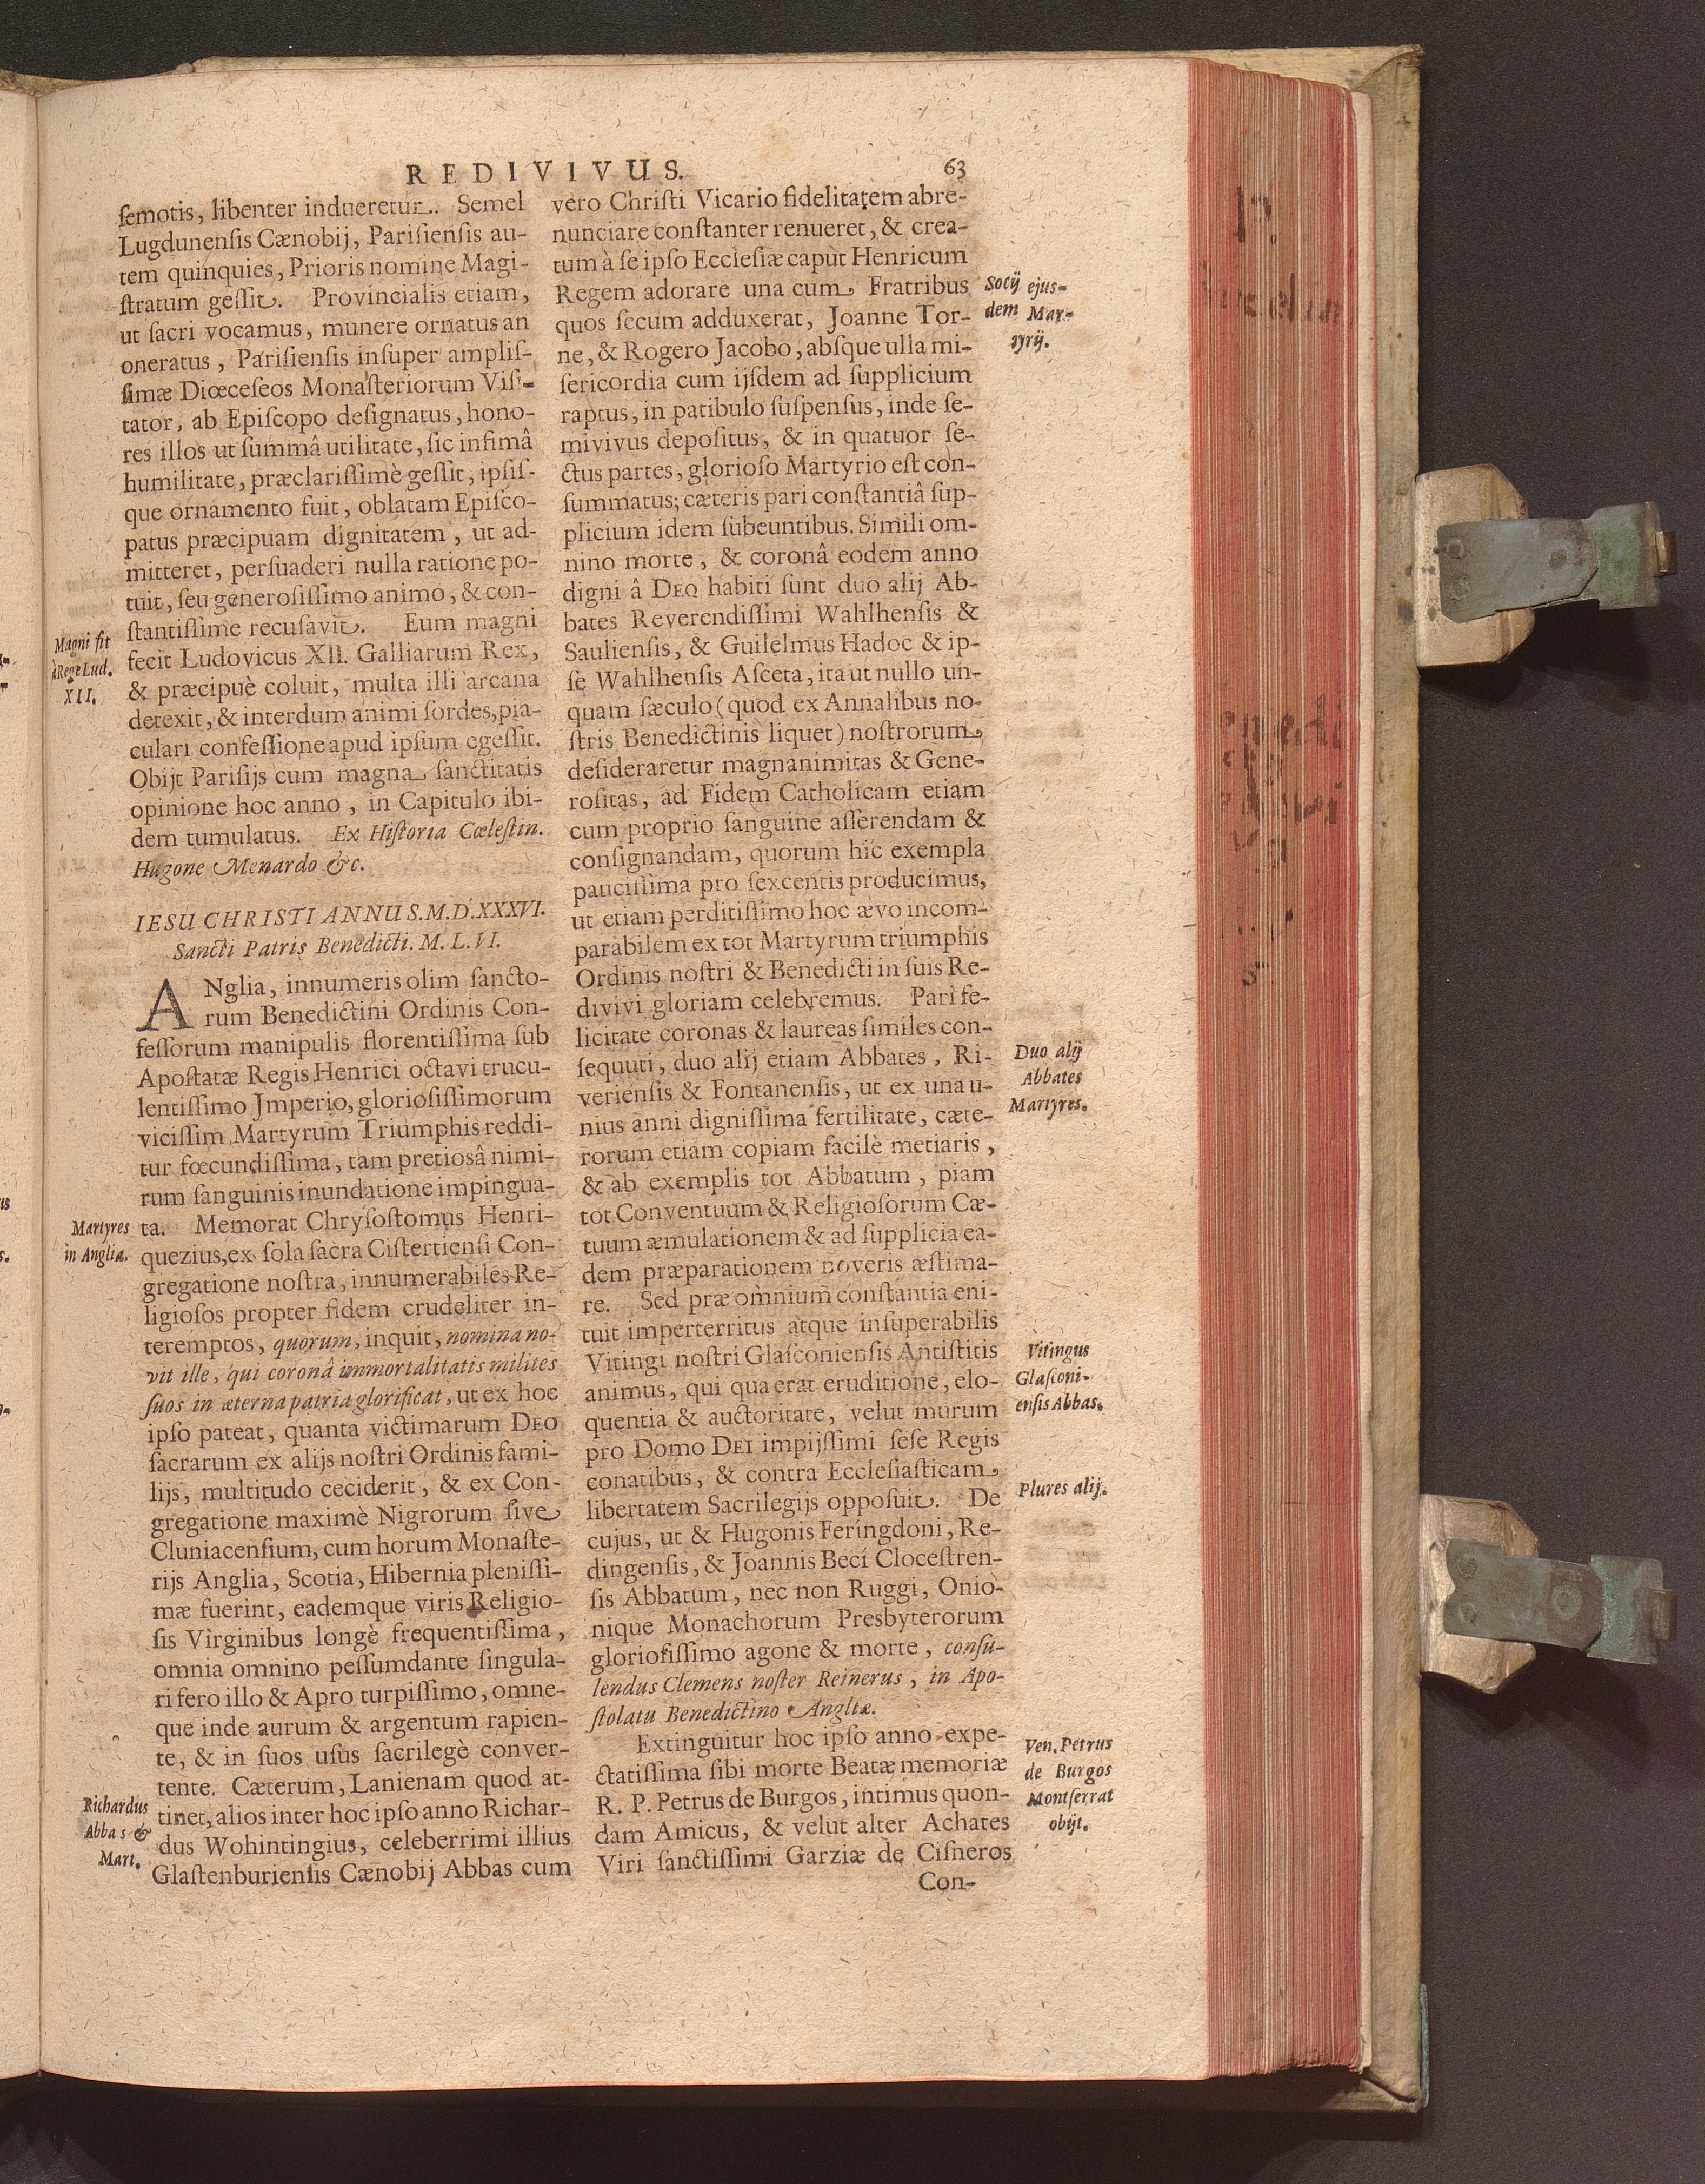 REDIVIVUS. 63
ſemotis, libenter indueretur. Semel
Lugdunenſis Cænobij, Pariſienſis au-
tem quinquies, Prioris nomine Magi-
ſtratum geſſit. Provincialis etiam,
ut ſacri vocamus, munere ornatus an
oneratus, Pariſienſis inſuper ampliſ-
ſimæ Diœceſeos Monaſteriorum Viſi-
tator, ab Epiſcopo deſignatus, hono-
res illos ut ſummâ utilitate, ſic infimâ
humilitate, præclariſſimè geſſit, ipſiſ-
que ornamento fuit, oblatam Epiſco-
patus præcipuam dignitatem, ut ad-
mitteret, perſuaderi nulla ratione po-
tuit, ſeu generoſiſſimo animo, & con-
ſtantiſſime recuſavit. Eum magni
fecit Ludovicus XII. Galliarum Rex,
& præcipuè coluit, multa illi arcana
detexit, & interdum animi ſordes, pia-
culari confeſſione apud ipſum egeſſit.
Obijt Pariſijs cum magna ſanctitatis
opinione hoc anno, in Capitulo ibi-
dem tumulatus. Ex Hiſtoria Cœleſtin.
Hugone Menardo &c.
Magni fit
à Rege Lud.
XII.
IESU CHRISTI ANNUS. M.D.XXXVI.
Sancti Patris Benedicti. M. L. VI.
ANglia, innumeris olim ſancto-
rum Benedictini Ordinis Con-
feſſorum manipulis florentiſſima ſub
Apoſtatæ Regis Henrici octavi trucu-
lentiſſimo Jmperio, glorioſiſſimorum
viciſſim Martyrum Triumphis reddi-
tur fœcundiſſima, tam pretiosâ nimi-
rum ſanguinis inundatione impingua-
ta. Memorat Chryſoſtomus Henri-
quezius, ex ſola ſacra Ciſtertienſi Con-
gregatione noſtra, innumerabiles Re-
ligioſos propter fidem crudeliter in-
teremptos, quorum, inquit, nomina no-
vit ille, qui coronâ immortalitatis milites
ſuos in æterna patria glorificat, ut ex hoc
ipſo pateat, quanta victimarum DEO
ſacrarum ex alijs noſtri Ordinis fami-
lijs, multitudo ceciderit, & ex Con-
gregatione maximè Nigrorum ſive
Cluniacenſium, cum horum Monaſte-
rijs Anglia, Scotia, Hibernia pleniſſi-
mæ fuerint, eademque viris Religio-
ſis Virginibus longè frequentiſſima,
omnia omnino peſſumdante ſingula-
ri fero illo & Apro turpiſſimo, omne-
que inde aurum & argentum rapien-
te, & in ſuos uſus ſacrilegè conver-
tente. Cæterum, Lanienam quod at-
tinet, alios inter hoc ipſo anno Richar-
dus Wohintingius, celeberrimi illius
Glaſtenburienſis Cænobij Abbas cum
Martyres
in Anglia.
Richardus
Abbas &
Mart.
vero Chriſti Vicario fidelitatem abre-
nunciare conſtanter renueret, & crea-
tum à ſe ipſo Eccleſiæ caput Henricum
Regem adorare una cum Fratribus
quos ſecum adduxerat, Joanne Tor-
ne, & Rogero Jacobo, abſque ulla mi-
ſericordia cum ijſdem ad ſupplicium
raptus, in patibulo ſuſpenſus, inde ſe-
mivivus depoſitus, & in quatuor ſe-
ctus partes, glorioſo Martyrio eſt con-
ſummatus; cæteris pari conſtantiâ ſup-
plicium idem ſubeuntibus. Simili om-
nino morte, & coronâ eodem anno
digni â DEO habiti ſunt duo alij Ab-
bates Reverendiſſimi Wahlhenſis &
Saulienſis, & Guilelmus Hadoc & ip-
ſe Wahlhenſis Aſceta, ita ut nullo un-
quam ſæculo (quod ex Annalibus no-
ſtris Benedictinis liquet) noſtrorum
deſideraretur magnanimitas & Gene-
roſitas, ad Fidem Catholicam etiam
cum proprio ſanguine aſſerendam &
conſignandam, quorum hic exempla
pauciſſima pro ſexcentis producimus,
ut etiam perditiſſimo hoc ævo incom-
parabilem ex tot Martyrum triumphis
Ordinis noſtri & Benedicti in ſuis Re-
divivi gloriam celebremus. Pari fe-
licitate coronas & laureas ſimiles con-
ſequuti, duo alij etiam Abbates, Ri-
verienſis & Fontanenſis, ut ex una u-
nius anni digniſſima fertilitate, cæte-
rorum etiam copiam facilè metiaris,
& ab exemplis tot Abbatum, piam
tot Conventuum & Religioſorum Cæ-
tuum æmulationem & ad ſupplicia ea-
dem præparationem noveris æſtima-
re. Sed præ omnium conſtantia eni-
tuit imperterritus atque inſuperabilis
Vitingi noſtri Glaſconienſis Antiſtitis
animus, qui qua erat eruditione, elo-
quentia & auctoritate, velut murum
pro Domo DEI impijſſimi ſeſe Regis
conatibus, & contra Eccleſiaſticam
libertatem Sacrilegijs oppoſuit. De
cujus, ut & Hugonis Feringdoni, Re-
dingenſis, & Joannis Becí Cloceſtren-
ſis Abbatum, nec non Ruggi, Onio-
nique Monachorum Presbyterorum
glorioſiſſimo agone & morte, conſu-
lendus Clemens noſter Reinerus, in Apo-
ſtolatu Benedictino Angliæ.
Extinguitur hoc ipſo anno expe-
ctatiſſima ſibi morte Beatæ memoriæ
R. P. Petrus de Burgos, intimus quon-
dam Amicus, & velut alter Achates
Viri ſanctiſſimi Garziæ de Ciſneros
Con-
Socij ejus-
dem Mar-
tyrij.
Duo alij
Abbates
Martyres.
Vitingus
Glaſconi-
enſis Abbas.
Plures alij.
Ven. Petrus
de Burgos
Montſerrat
obijt.